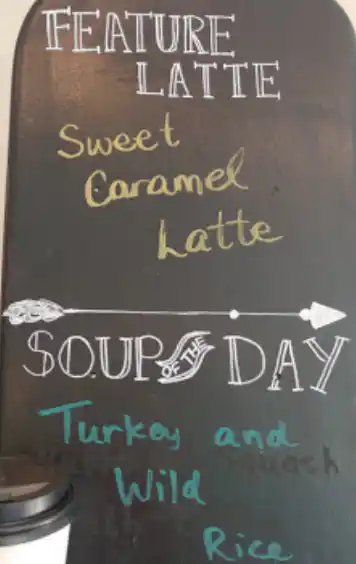 FEATURE
LATTE
Sweet
Caramel
Latte
SOUP OF THE DAY
Turkey and
Wild
Rice